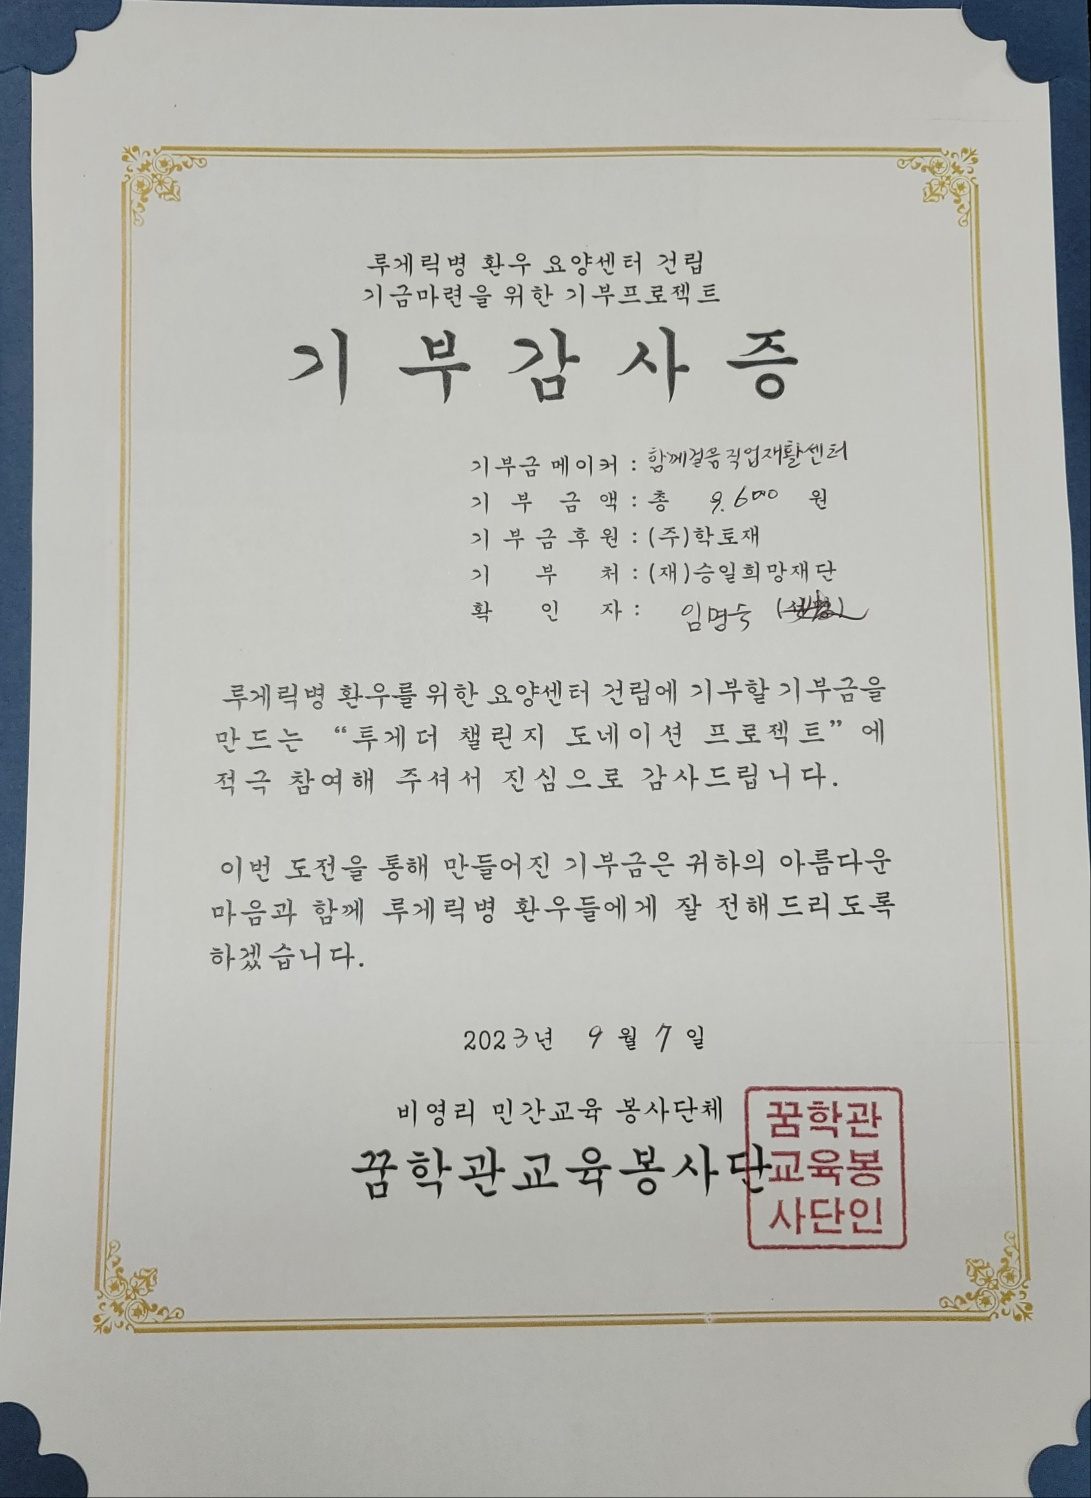 루게릭병 환우 요양센터 건립
기금마련을 위한 기부프로젝트
기부감사증
기부금메이커 : 함께걸음직업재활센터
기부금액 : 총 9.600 원
기부금후원 : (주)학토재
기부처 : (재)승일희망재단
확인자 : 임명숙
루게릭병 환우를 위한 요양센터 건립에 기부할 기부금을
만드는 “투게더 챌린지 도네이션 프로젝트” 에
적극 참여해 주셔서 진심으로 감사드립니다.
이번 도전을 통해 만들어진 기부금은 귀하의 아름다운
마음과 함께 루게릭병 환우들에게 잘 전해드리도록
하겠습니다.
2023년 9월 7일
비영리 민간교육 봉사단체
꿈학관교육봉사단
꿈학관
교육봉
사단인